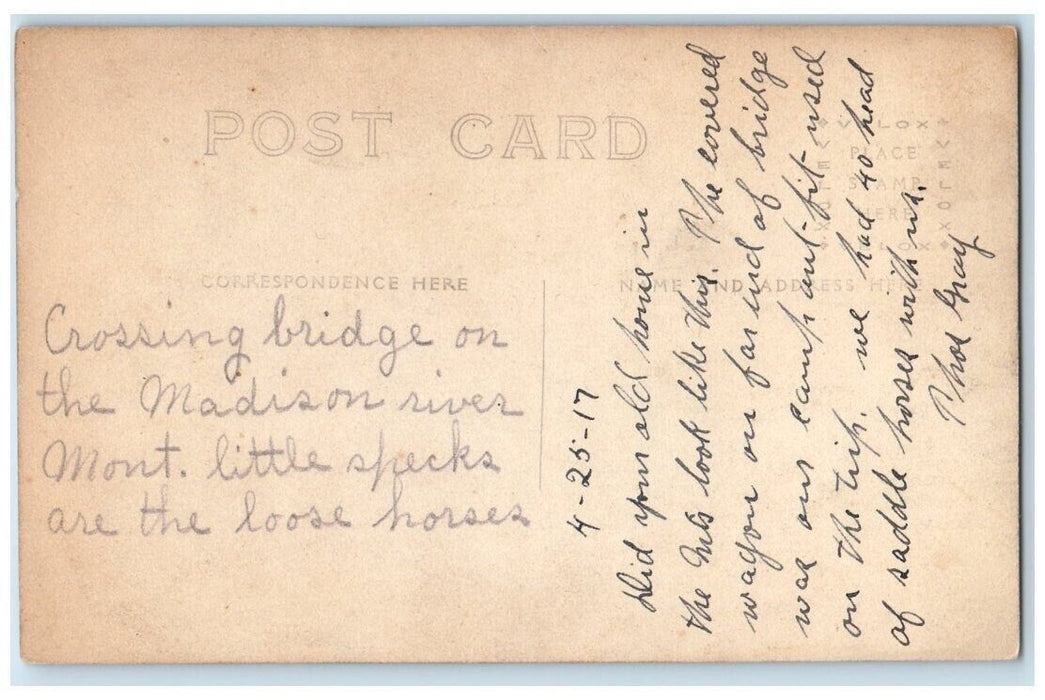 POST CARD
CORRESPONDENCE HERE
NAME AND ADDRESS HERE
VELOX
PLACE
STAMP
HERE
VELOX
Crossing bridge on
the Madison river
Mont. little specks
are the loose horses
4-25-17
Did your old home in
the Mts look like this. The covered
wagon on far end of bridge
was our camp out-fit used
on the trip. we had 40 head
of saddle horses with us.
Thos Gray